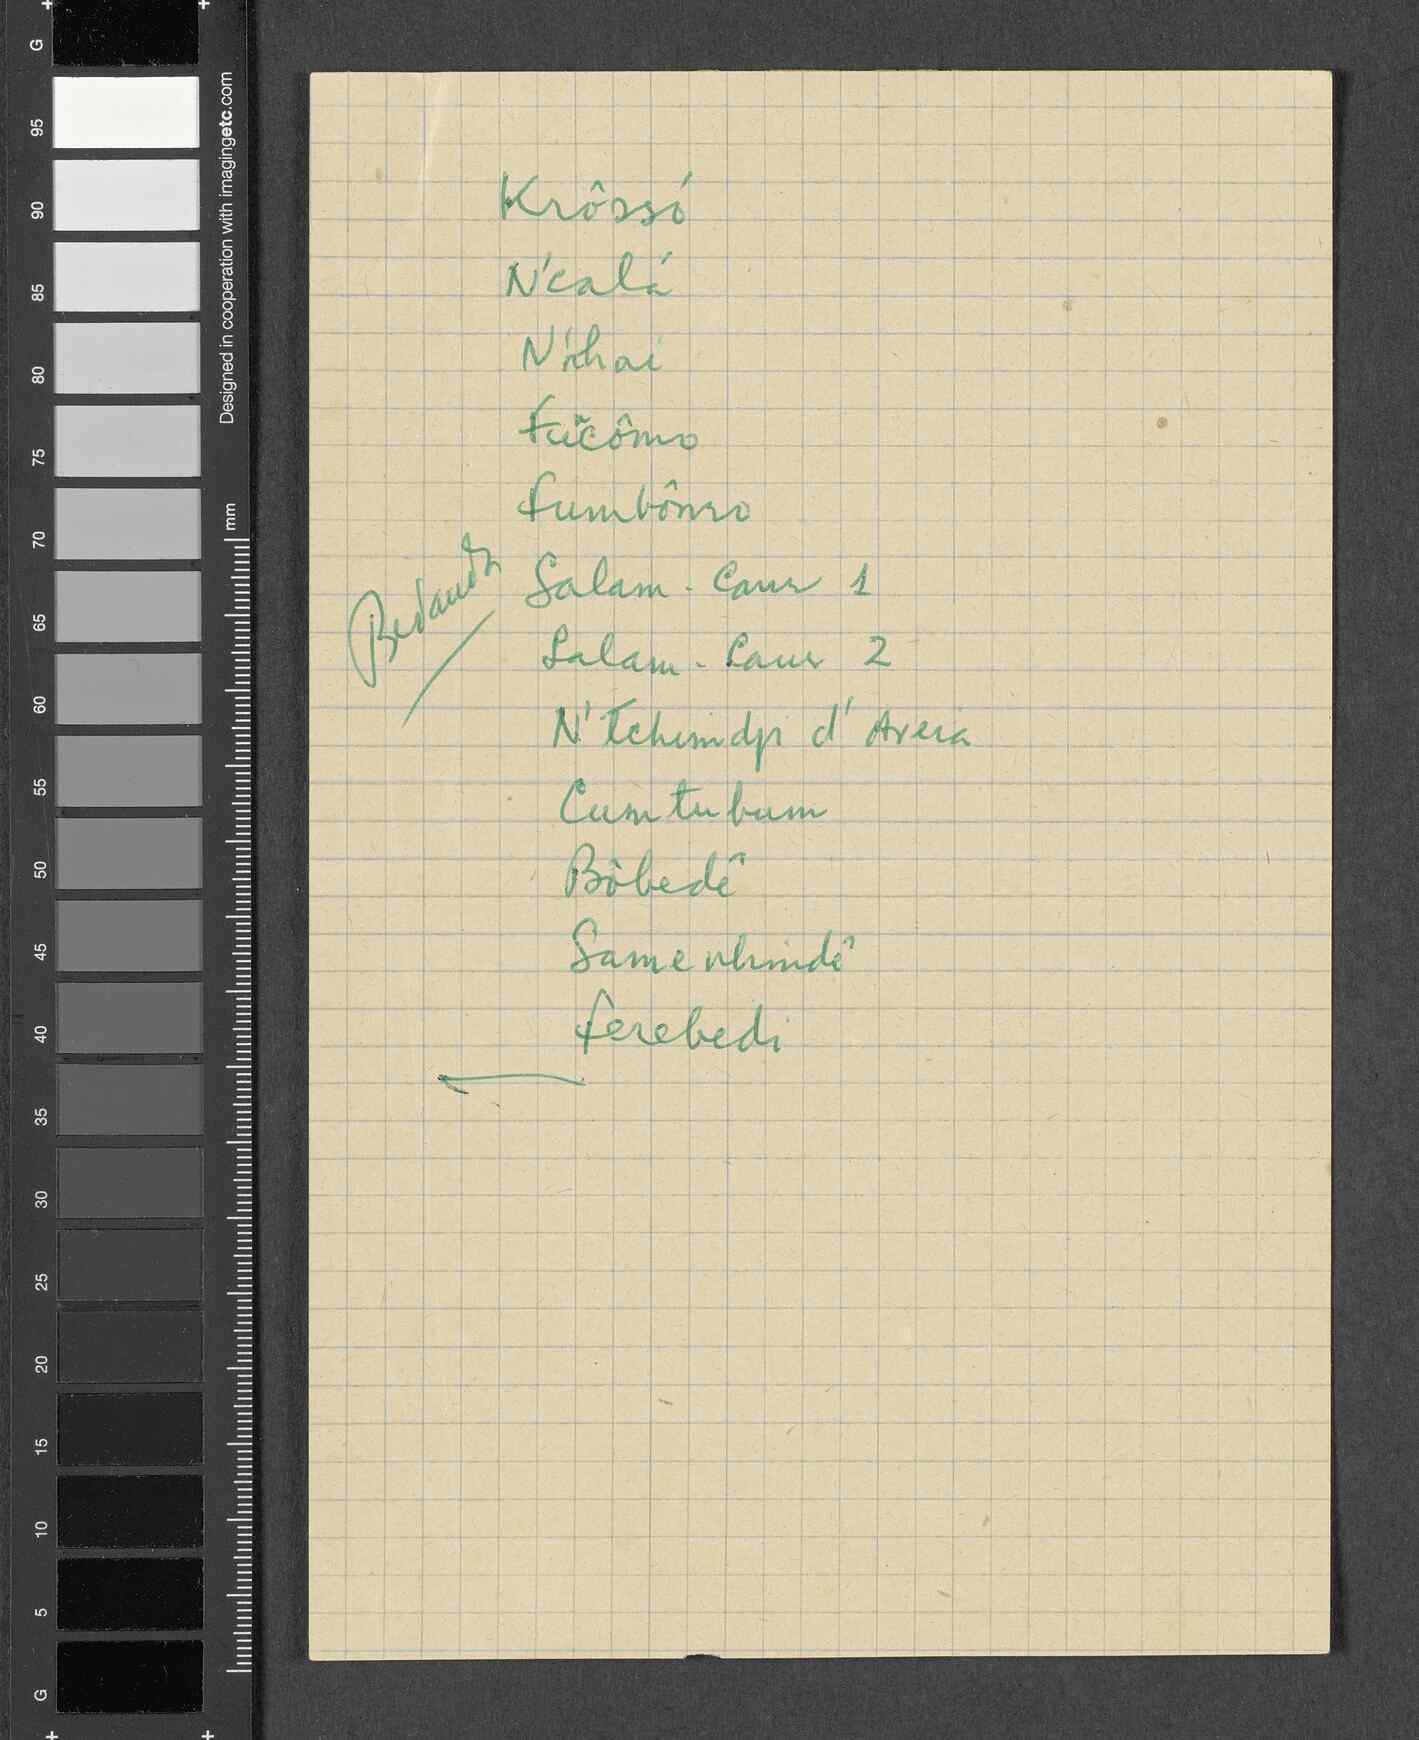 Krôssó
N'calá
N'nhai
Fuĩcômo
Fumbômo
Bedanda
Salam - Caur 1
Salam - Caur 2
N'Tchimdpi d'Areia
Cumtubum
Bôbedê
Samenhimdê
Ferebedi
Designed in cooperation with imagingetc.com
mm
G
95
90
85
80
75
70
65
60
55
50
45
40
35
30
25
20
15
10
5
G